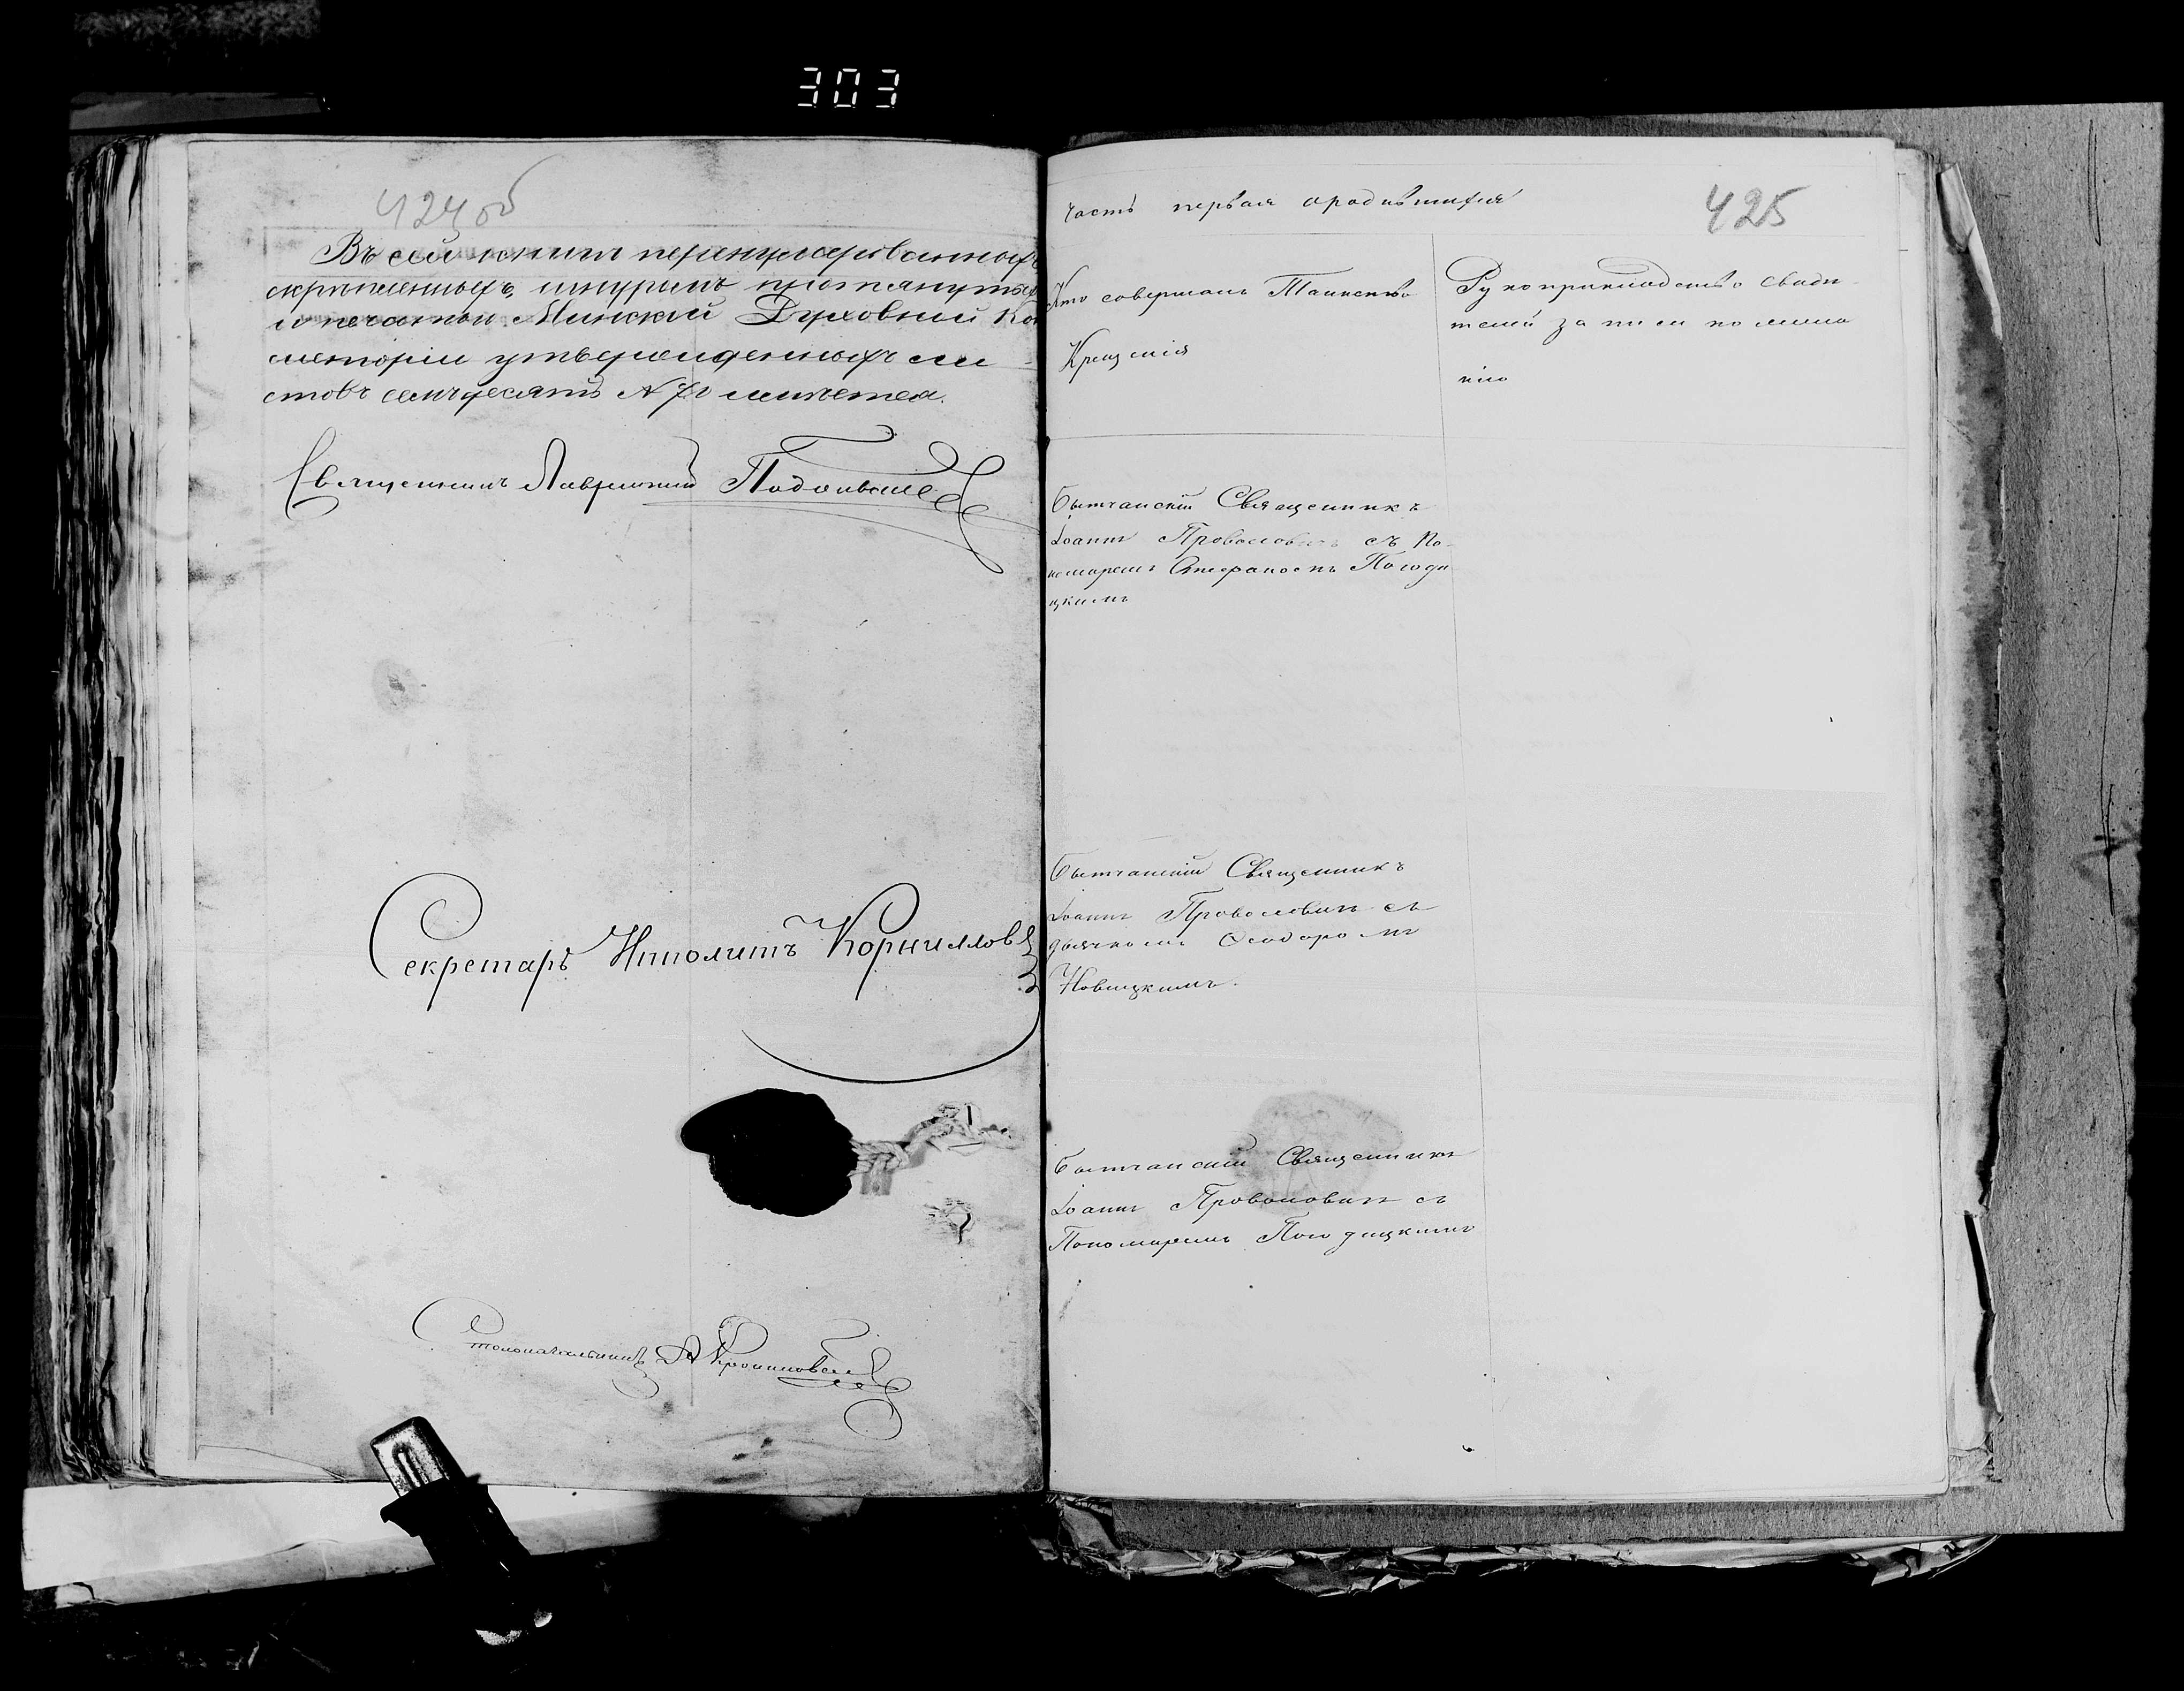 303
424об
Въ сей книгѣ перенумерованныхъ
скрѣпленныхъ, шнуромъ протянутыхъ
и печатью Минской Духовной Кон
систоріи утвержденныхъ ли-
стовъ семьдесятъ № 70 имѣется.
Священникъ Лаврентій
Секретарь Ипполитъ Корниловъ
Столоначальникъ А
Часть первая о родившихся
425
Кто совершалъ Таинство
Крещенія
Рукоприкладство свидѣ-
телей записи по жела
нію
Бытчанскій Священникъ
Іоаннъ Проволовичъ съ По-
номаремъ Стефаномъ Погоди
цкимъ
Бытчанскій Священникъ
Іоаннъ Проволовичъ съ
дьячкомъ Ѳеодоромъ
Новицкимъ.
Бытчанскій Священникъ
Іоаннъ Проволовичъ съ
Пономаремъ Погодицкимъ